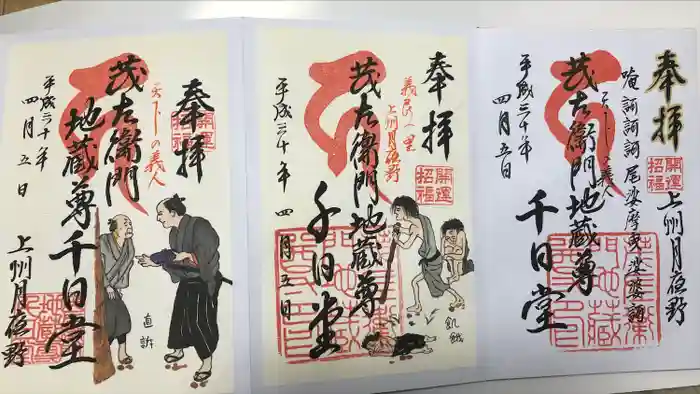 奉拝
開運
招福
天下一の義人
茂左衛門
地蔵尊千日堂
平成三十年
四月五日
上州月夜野
直訴
奉拝
開運
招福
義民の里
上州月夜野
茂左衛門地蔵尊
千日堂
平成三十年四月五日
飢餓
奉拝
開運
招福
上州月夜野
唵訶訶訶尾娑摩曳娑婆訶
天下一の義人
茂左衛門地蔵尊
千日堂
平成三十年
四月五日